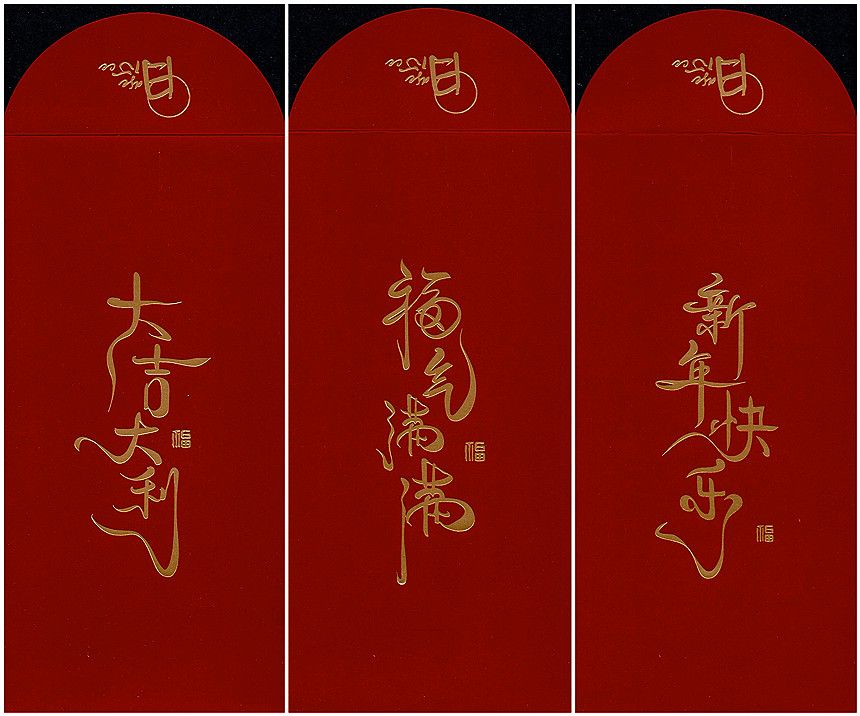 大吉大利
福
福气满满
福
新年快乐
福